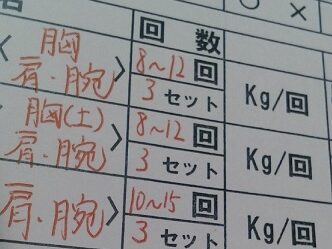 名 ○ ×
回 数
< 胸 8~12 回 Kg/回
肩・腕 > 3 セット
< 胸(土) 8~12 回 Kg/回
肩・腕 > 3 セット
肩・腕 > 10~15 回 Kg/回
3 セット